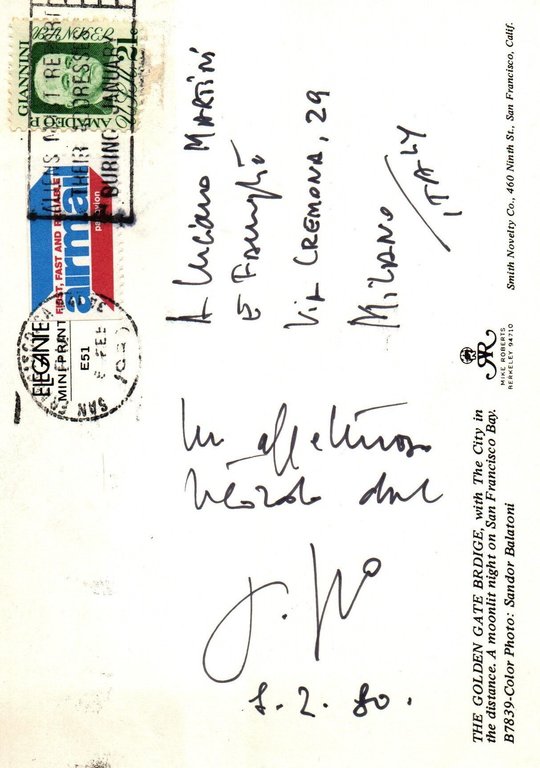 Un affettuoso
ricordo dal
2. 80.
A Luciano MARTINI
E Famiglia
Via CREMONA, 29
MILANO
ITALY
GIANNINI
AMADEO P.
21c
ALIENS MUST REPORT
THEIR ADDRESSES
DURING JANUARY
FIRST, FAST AND RELIABLE
airmail
par avion
ELEGANTE
MINI PRINT
E51
FEB
THE GOLDEN GATE BRDIGE, with The City in
the distance. A moonlit night on San Francisco Bay.
B7839-Color Photo: Sandor Balatoni
MIKE ROBERTS
BERKELEY 94710
Smith Novelty Co., 460 Ninth St., San Francisco, Calif.